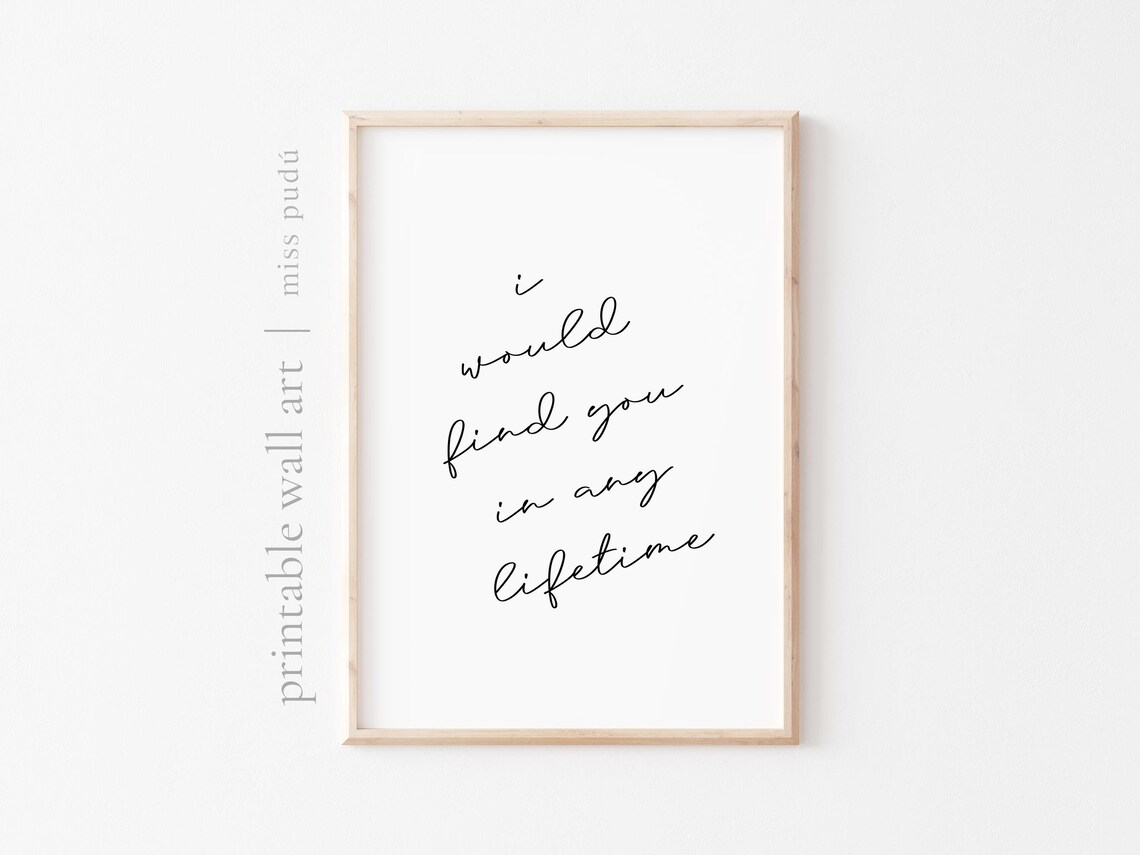 printable wall art | miss pudú
i
would
find you
in any
lifetime